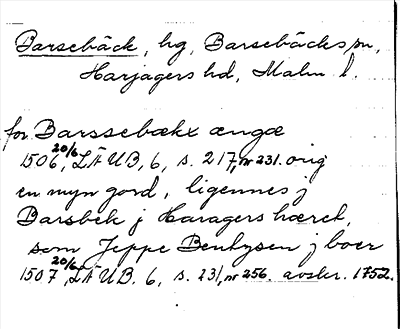 Barsebäck, hg, Barsebäcks sn,
Harjagers hd, Malm. l.
for Barssebækx ængæ
1506 20/6, LÄUB, 6, s. 217, nr 231. orig
en myn gord, ligennes j
Barsbek j Haragers hæret,
som Jeppe Benktysen j boer
1507 20/6, LÄUB. 6, s. 231, nr 256. avskr. 1752.